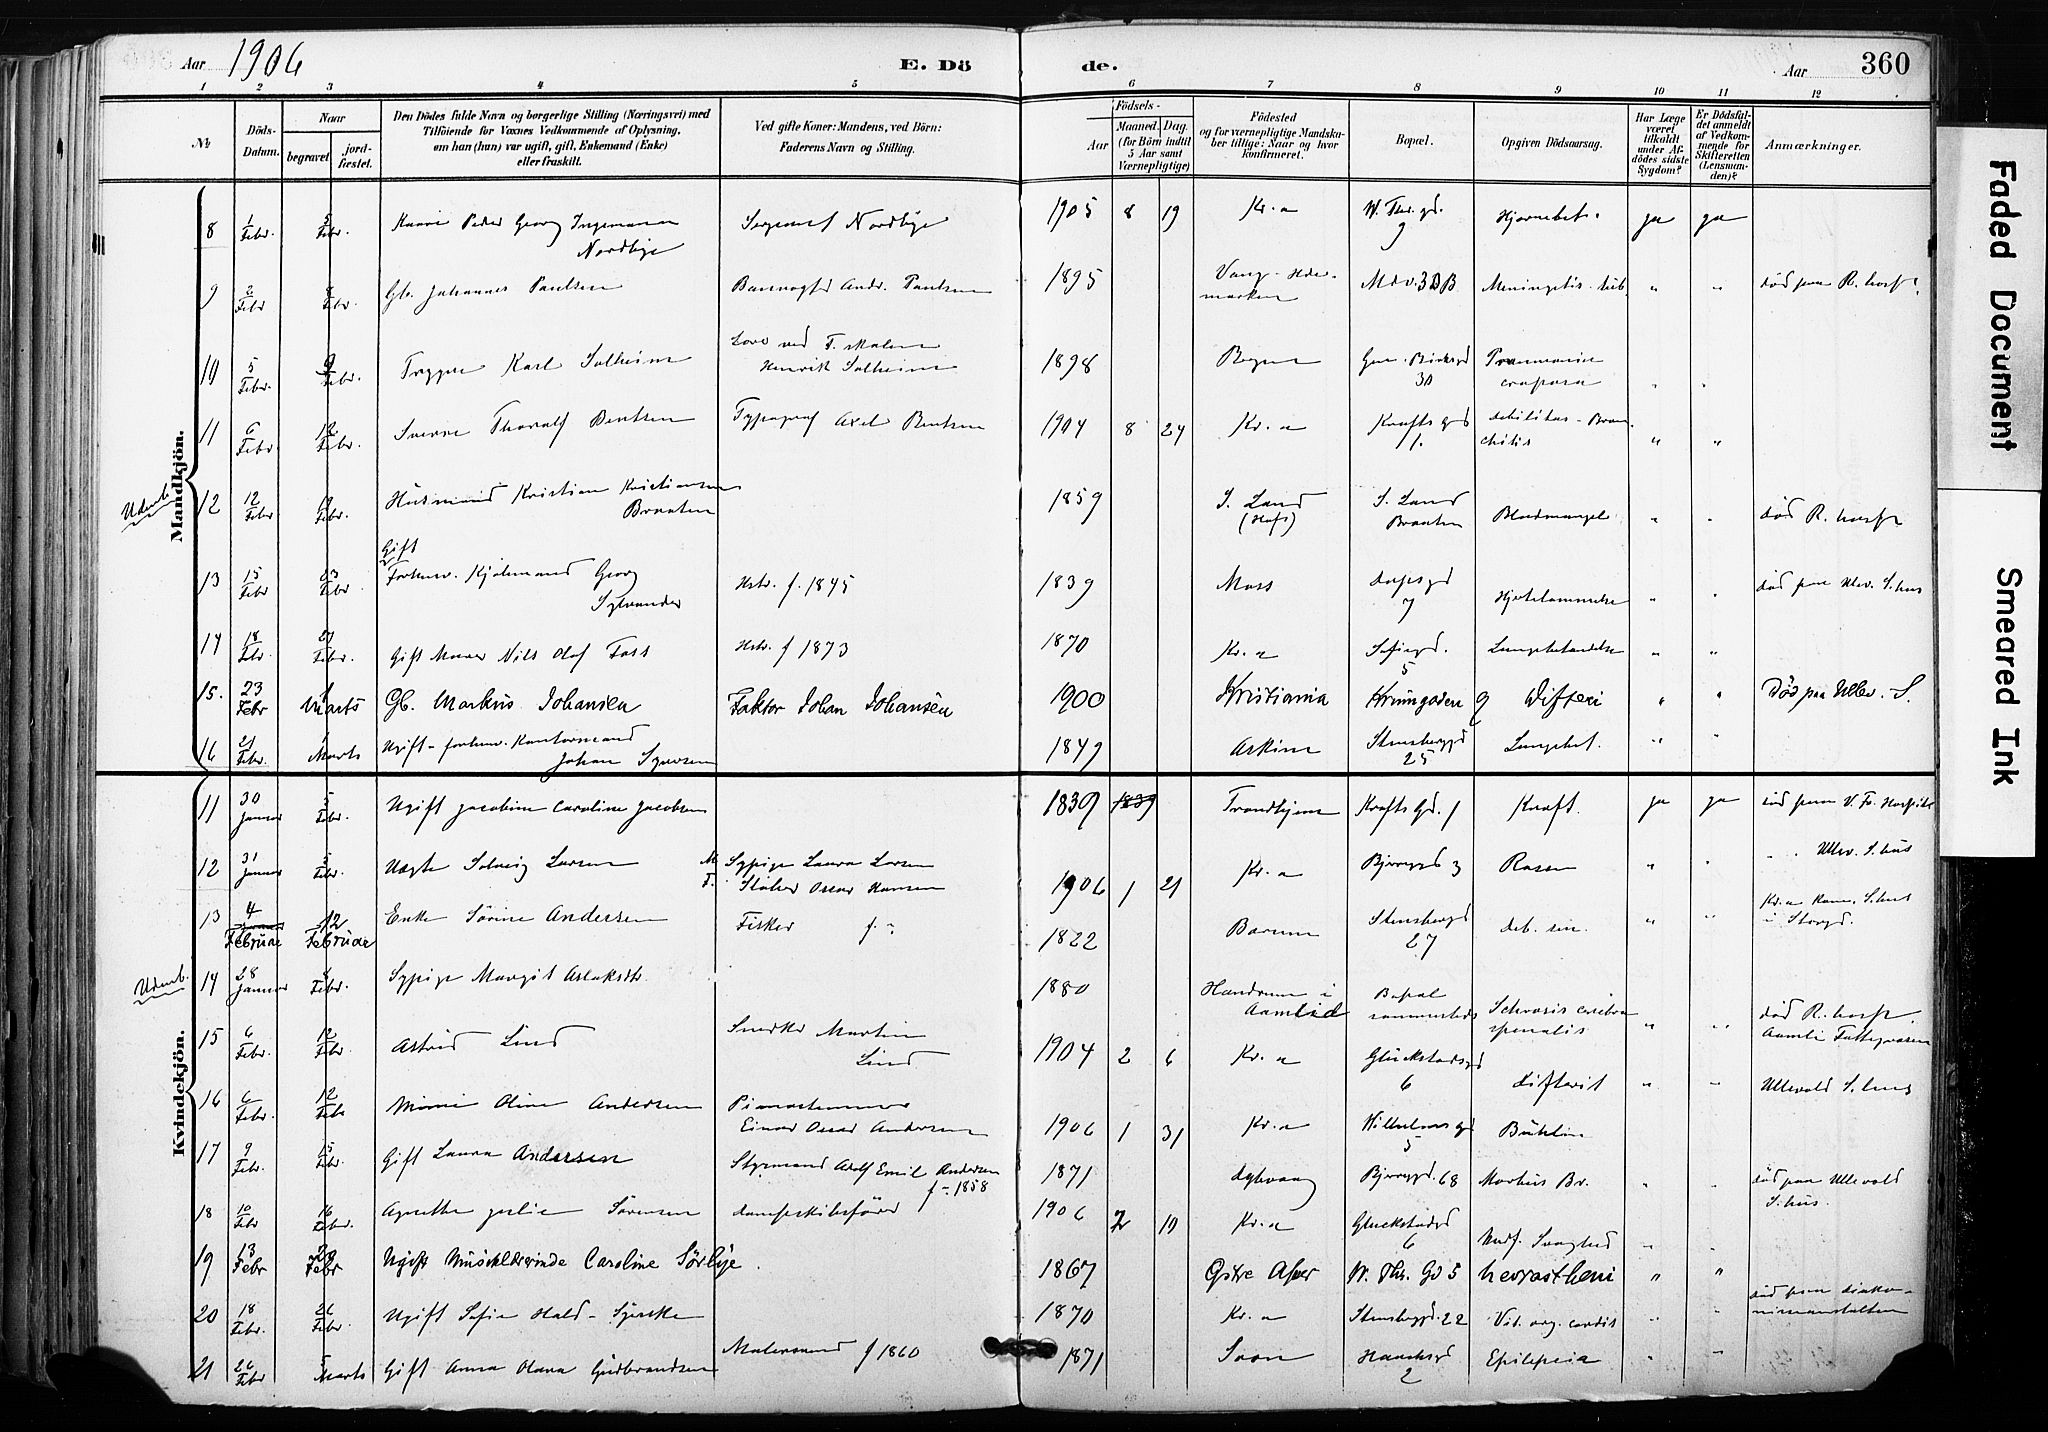 Aar 1906 E. Dö de. Aar 360
1 2 3 4 5 6 7 8 9 10 11 12
№
Döds-Datum.
Naar
begravet jord-fæstet.
Den Dödes fulde Navn og borgerlige Stilling (Næringsvei) med
Tilföiende for Voxnes Vedkommende af Oplysning,
om han (hun) var ugift, gift, Enkemand (Enke)
eller fraskilt.
Ved gifte Koner: Mandens, ved Börn:
Faderens Navn og Stilling.
Födsels-
Aar Maaned. Dag.
(for Börn indtil
5 Aar samt
Værnepligtige)
Födested
og for værnepligtige Mandska-
ber tillige: Naar og hvor
konfirmeret.
Bopæl.
Opgiven Dödsaarsag.
Har Læge
været
tilkaldt
under Af-
dödes sidste
Sygdom?
Er Dödsfal-
det anmeldt
af Vedkom-
mende for
Skifteretten
(Lensman-
den)?
Anmærkninger.
Mandkjön.
8 1 Febr. 5 Febr. Peder Georg Ingemann Nordbye Sergeant Nordbye 1905 8 19 Kr.a W. Thr. gd. 9 Hjernebet. ja ja
9 2 Febr 8 Febr. Gb. Johannes Paulsen Andr. Paulsen 1895 Vang. Hede-marken Mdv. 3 Meningitis tub. " " död paa R. hosp.
10 5 Febr. 9 Febr. Trygve Karl Solheim Henrik Solheim 1898 Gen. Birchsgd 30 Pneumonia crouposa " "
11 6 Febr 12 Febr. Sverre Thoralf Bentsen Typograf Axel Bentsen 1904 8 24 Kr.a Krafts gd 1. debilitas - Bron-chitis " "
Udenb.
12 12 Febr 19 Febr. Husmand Kristian Kristiansen Braaten 1859 S. Land (Hofs) S. Land Braaten Blodmangel " " död R. hosp
13 15 Febr 23 Febr. Gift Forhenv. Kjöbmand Georg Sylvander Hstr. f. 1845 1839 Moss 7 Hjertelammelse " " död paa Ulev. S.hus
14 18 Febr. 27 Febr. Gift Murer Nils Olof Foss Hstr. f 1873 1870 Kr.a Sofiegd. 5 Lungebetændelse " "
15. 23 Febr 1 Marts Gb. Markus Johansen Faktor Johan Johansen 1900 Kristiania 9 Difteri " " Död paa Ullev. S.
16 21 Febr. 1 Marts Ugift - forhenv. Kontormand Johan Syversen 1849 Askim Stensberggd 25 Lungebet. " "
Kvindekjön.
11 30 Januar 5 Febr. Ugift Jacobine Caroline Jacobsen 1839 1839 Trondhjem Krafts Gd. 1 Kræft. ja ja död paa V. Fr. Hospital
12 31 Januar 5 Febr. Uægte Solveig Larsen M. Sypige Laura Larsen F. Stöber Oscar Hansen 1906 1 21 Kr.a Bjerregd 3 Rosen " " " " Ullev. S. hus
13 4 Februar 12 Februar Enke Sörine Andersen Fisker f. - 1822 Bærum Stensberggd 27 deb. sen. " " Kr.a Kom. S.hus i Storgd.
Udenb.
14 28 Januar 8 Febr. Sypige Margit Aslaksdtr. 1880 i Aamlid Bopæl sammesteds cerebro spinalis " " död R. hosp. Aamli Fattigvæsen
15 6 Febr. 12 Febr. Astrid Lind Snedker Martin Lind 1904 2 6 Kr.a Glückstadsgd 6 difterit " " Ullevold S. hus
16 6 Febr. 12 Febr Mimmi Oline Andersen Pianostemmer Einar Oscar Andersen 1906 1 31 Kr.a Wilhelmsgd 5
17 9 Febr. 15 Febr. Gift Laura Andersen Styrmand Adolf Emil Andersen f. - 1858 1871 Bjerregd. 68 Morbus Br. " " död paa Ullevold S.hus.
18 10 Febr 16 Febr. Agnethe Julie Sörensen dampskibsförer 1906 2 10 Kr.a Glückstadgd 6 Medf. Svaghed " "
19 13 Febr 20 Febr Ugift Musiklærerinde Caroline Sörbye. 1867 Östre Aker W. Thr. Gd 5 nevrastheni " "
20 18 Febr. 26 Febr. Ugift Sofie Hald - 1870 Kr.a Stensbggd. 22 Vit. org. cordis " " död paa diako-nisseanstalten
21 26 Febr 5 Marts Gift Anna Olava Gudbrandsen Malersvend f 1860 1871 Soon 2 Epilepsia " "
Faded Document
Smeared Ink